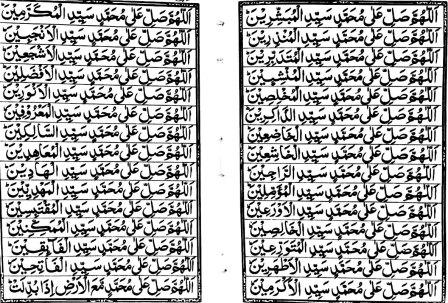 اَللّٰهُمَّ صَلِّ عَلٰى مُحَمَّدٍ سَيِّدِ الْمُبَشِّرِيْنَ
اَللّٰهُمَّ صَلِّ عَلٰى مُحَمَّدٍ سَيِّدِ الْمُنْذِرِيْنَ
اَللّٰهُمَّ صَلِّ عَلٰى مُحَمَّدٍ سَيِّدِ
اَللّٰهُمَّ صَلِّ عَلٰى مُحَمَّدٍ سَيِّدِ
اَللّٰهُمَّ صَلِّ عَلٰى مُحَمَّدٍ سَيِّدِ الْمُخْلِصِيْنَ
اَللّٰهُمَّ صَلِّ عَلٰى مُحَمَّدٍ سَيِّدِ الذَّاكِرِيْنَ
اَللّٰهُمَّ صَلِّ عَلٰى مُحَمَّدٍ سَيِّدِ الْخَاضِعِيْنَ
اَللّٰهُمَّ صَلِّ عَلٰى مُحَمَّدٍ سَيِّدِ الْخَاشِعِيْنَ
اَللّٰهُمَّ صَلِّ عَلٰى مُحَمَّدٍ سَيِّدِ الرَّاجِيْنَ
اَللّٰهُمَّ صَلِّ عَلٰى مُحَمَّدٍ سَيِّدِ الْمُؤَمِّلِيْنَ
اَللّٰهُمَّ صَلِّ عَلٰى مُحَمَّدٍ سَيِّدِ الْاَوْرَعِيْنَ
اَللّٰهُمَّ صَلِّ عَلٰى مُحَمَّدٍ سَيِّدِ الْخَالِصِيْنَ
اَللّٰهُمَّ صَلِّ عَلٰى مُحَمَّدٍ سَيِّدِ الْمُتَوَرِّعِيْنَ
اَللّٰهُمَّ صَلِّ عَلٰى مُحَمَّدٍ سَيِّدِ الْاَطْهَرِيْنَ
اَللّٰهُمَّ صَلِّ عَلٰى مُحَمَّدٍ سَيِّدِ الْاَكْرَمِيْنَ
اَللّٰهُمَّ صَلِّ عَلٰى مُحَمَّدٍ سَيِّدِ الْمُكَرَّمِيْنَ
اَللّٰهُمَّ صَلِّ عَلٰى مُحَمَّدٍ سَيِّدِ الْاَنْجَبِيْنَ
اَللّٰهُمَّ صَلِّ عَلٰى مُحَمَّدٍ سَيِّدِ الْاَشْجَعِيْنَ
اَللّٰهُمَّ صَلِّ عَلٰى مُحَمَّدٍ سَيِّدِ الْاَفْضَلِيْنَ
اَللّٰهُمَّ صَلِّ عَلٰى مُحَمَّدٍ سَيِّدِ الْاَنْوَرِيْنَ
اَللّٰهُمَّ صَلِّ عَلٰى مُحَمَّدٍ سَيِّدِ الْمَعْرُوْفِيْنَ
اَللّٰهُمَّ صَلِّ عَلٰى مُحَمَّدٍ سَيِّدِ السَّالِكِيْنَ
اَللّٰهُمَّ صَلِّ عَلٰى مُحَمَّدٍ سَيِّدِ الْمُعَاهِدِيْنَ
اَللّٰهُمَّ صَلِّ عَلٰى مُحَمَّدٍ سَيِّدِ الْهَادِيْنَ
اَللّٰهُمَّ صَلِّ عَلٰى مُحَمَّدٍ سَيِّدِ الْمَهْدِيِّيْنَ
اَللّٰهُمَّ صَلِّ عَلٰى مُحَمَّدٍ سَيِّدِ الْمُقْتَبِسِيْنَ
اَللّٰهُمَّ صَلِّ عَلٰى مُحَمَّدٍ سَيِّدِ الْمُمَكَّنِيْنَ
اَللّٰهُمَّ صَلِّ عَلٰى مُحَمَّدٍ سَيِّدِ الْفَائِقِيْنَ
اَللّٰهُمَّ صَلِّ عَلٰى مُحَمَّدٍ سَيِّدِ الْفَاتِحِيْنَ
اَللّٰهُمَّ صَلِّ عَلٰى مُحَمَّدٍ مَّعَ الْاَرْضِ اِذَا بُدِّلَتْ